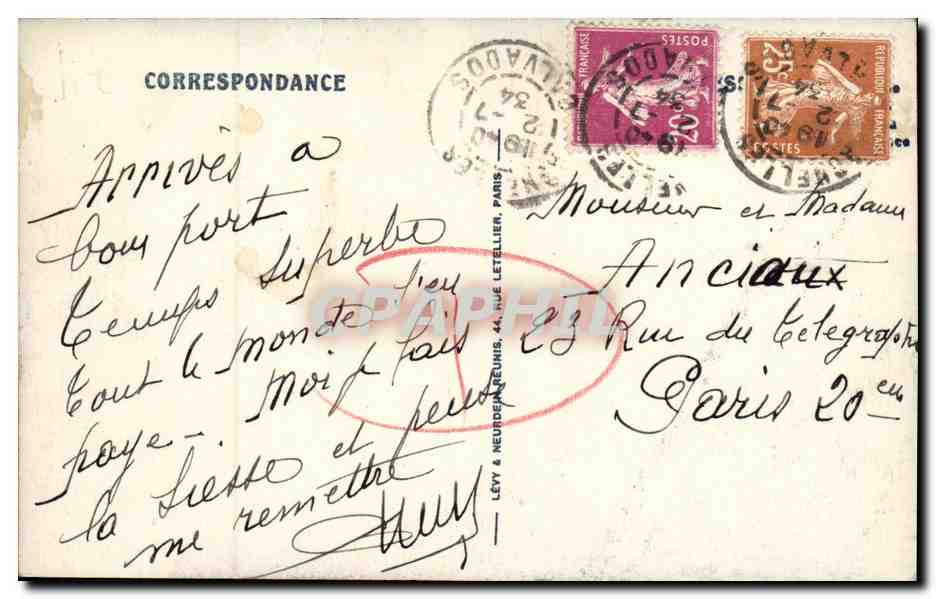 CORRESPONDANCE
Arrivés a
bon port
temps superbe
tout le monde s'en
paye -. Moi je fais
la sieste et pense
me remettre
LÉVY & NEURDEIN RÉUNIS, 44, RUE LETELLIER, PARIS
Monsieur et Madame
Anciaux
23 Rue du Telegraphe
Paris 20em
POSTES
FRANÇAISE
20c
CALVADOS
19 40
7 - 2
34
RÉPUBLIQUE
FRANÇAISE
POSTES
25c
CPAPHIL